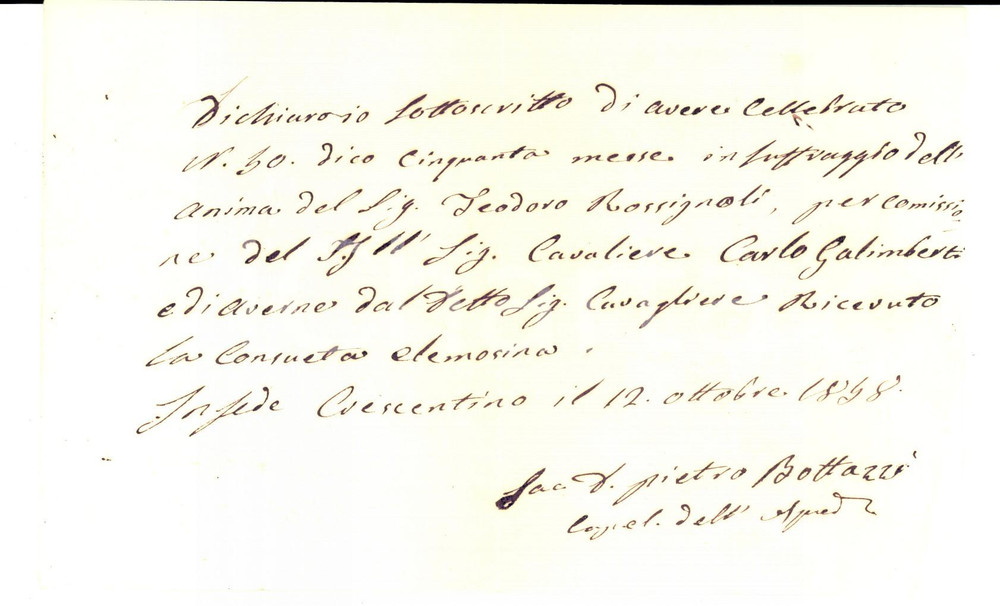 Dichiaro io sottoscritto di avere Cellebrato
N. 50. dico Cinquanta messe in suffraggio dell'
anima del Sig. Teodoro Rossignoli, per comissio
ne del Ill' Sig. Cavaliere Carlo Galimberti
e di averne dal Detto Sig. Cavagliere Ricevuto
la Consueta elemosina.
In fede Crescentino il 12. ottobre 1858.
Sac. D. pietro Bottazzi
Capel. dell'